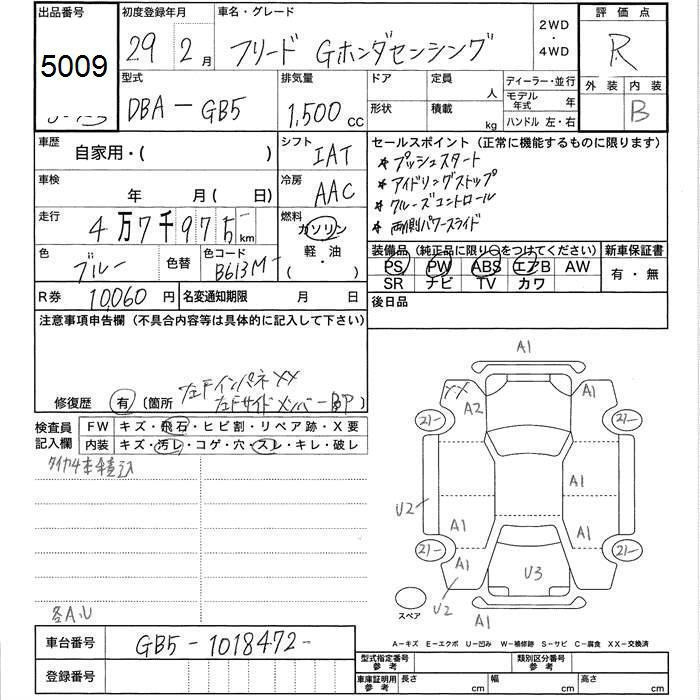 出品番号 初度登録年月 車名・グレード 2WD・4WD 評価点
5009 29年2月 フリード Gホンダセンシング R
型式 排気量 ドア 定員 人 ディーラー・並行 外装 内装
DBA-GB5 1,500cc 形状 積載 kg モデル年式 年 B
ハンドル 左・右
車歴 自家用・( ) シフト IAT セールスポイント(正常に機能するものに限ります)
★プッシュスタート
車検 年 月(日) 冷房 AAC ★アイドリングストップ
★クルーズコントロール
走行 4万7千975km 燃料 ガソリン・軽・油・( ) ★両側パワースライド
色 ブルー 色替 色コード B613M- 装備品(純正品に限り○をつけてください) 新車保証書
PS PW ABS エアB AW 有・無
SR ナビ TV カワ
R券 10,060円 名変通知期限 月 日 後日品
注意事項申告欄(不具合内容等は具体的に記入して下さい)
修復歴 有 (箇所 左Fインパネ××
左Fサイドメンバー-BP)
検査員記入欄 FW キズ・飛石・ヒビ割・リペア跡・X要
内装 キズ・汚レ・コゲ・穴・スレ・キレ・破レ
タイヤ4本積込
各A.U
A1
XX A2 A1
21- 21-
A1
U2 A1 A1
21- 21-
A1 U3 A1
U2
A1
スペア
A-キズ E-エクボ U-凹み W-補修跡 S-サビ C-腐食 XX-交換済
車台番号 GB5-1018472-
登録番号
型式指定番号参考 類別区分番号参考
車庫証明用参考 長さ cm 幅 cm 高さ cm